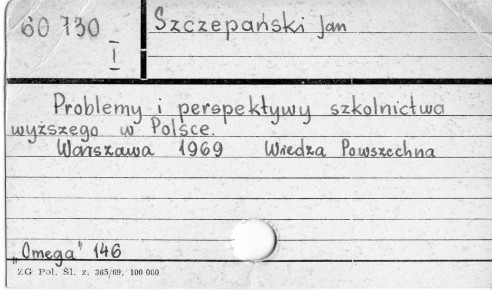 60 730
I
Szczepański Jan
Problemy i perspektywy szkolnictwa
wyższego w Polsce.
Warszawa 1969 Wiedza Powszechna
„Omega" 146
ZG Pol. Śl. z. 365/69. 100 000